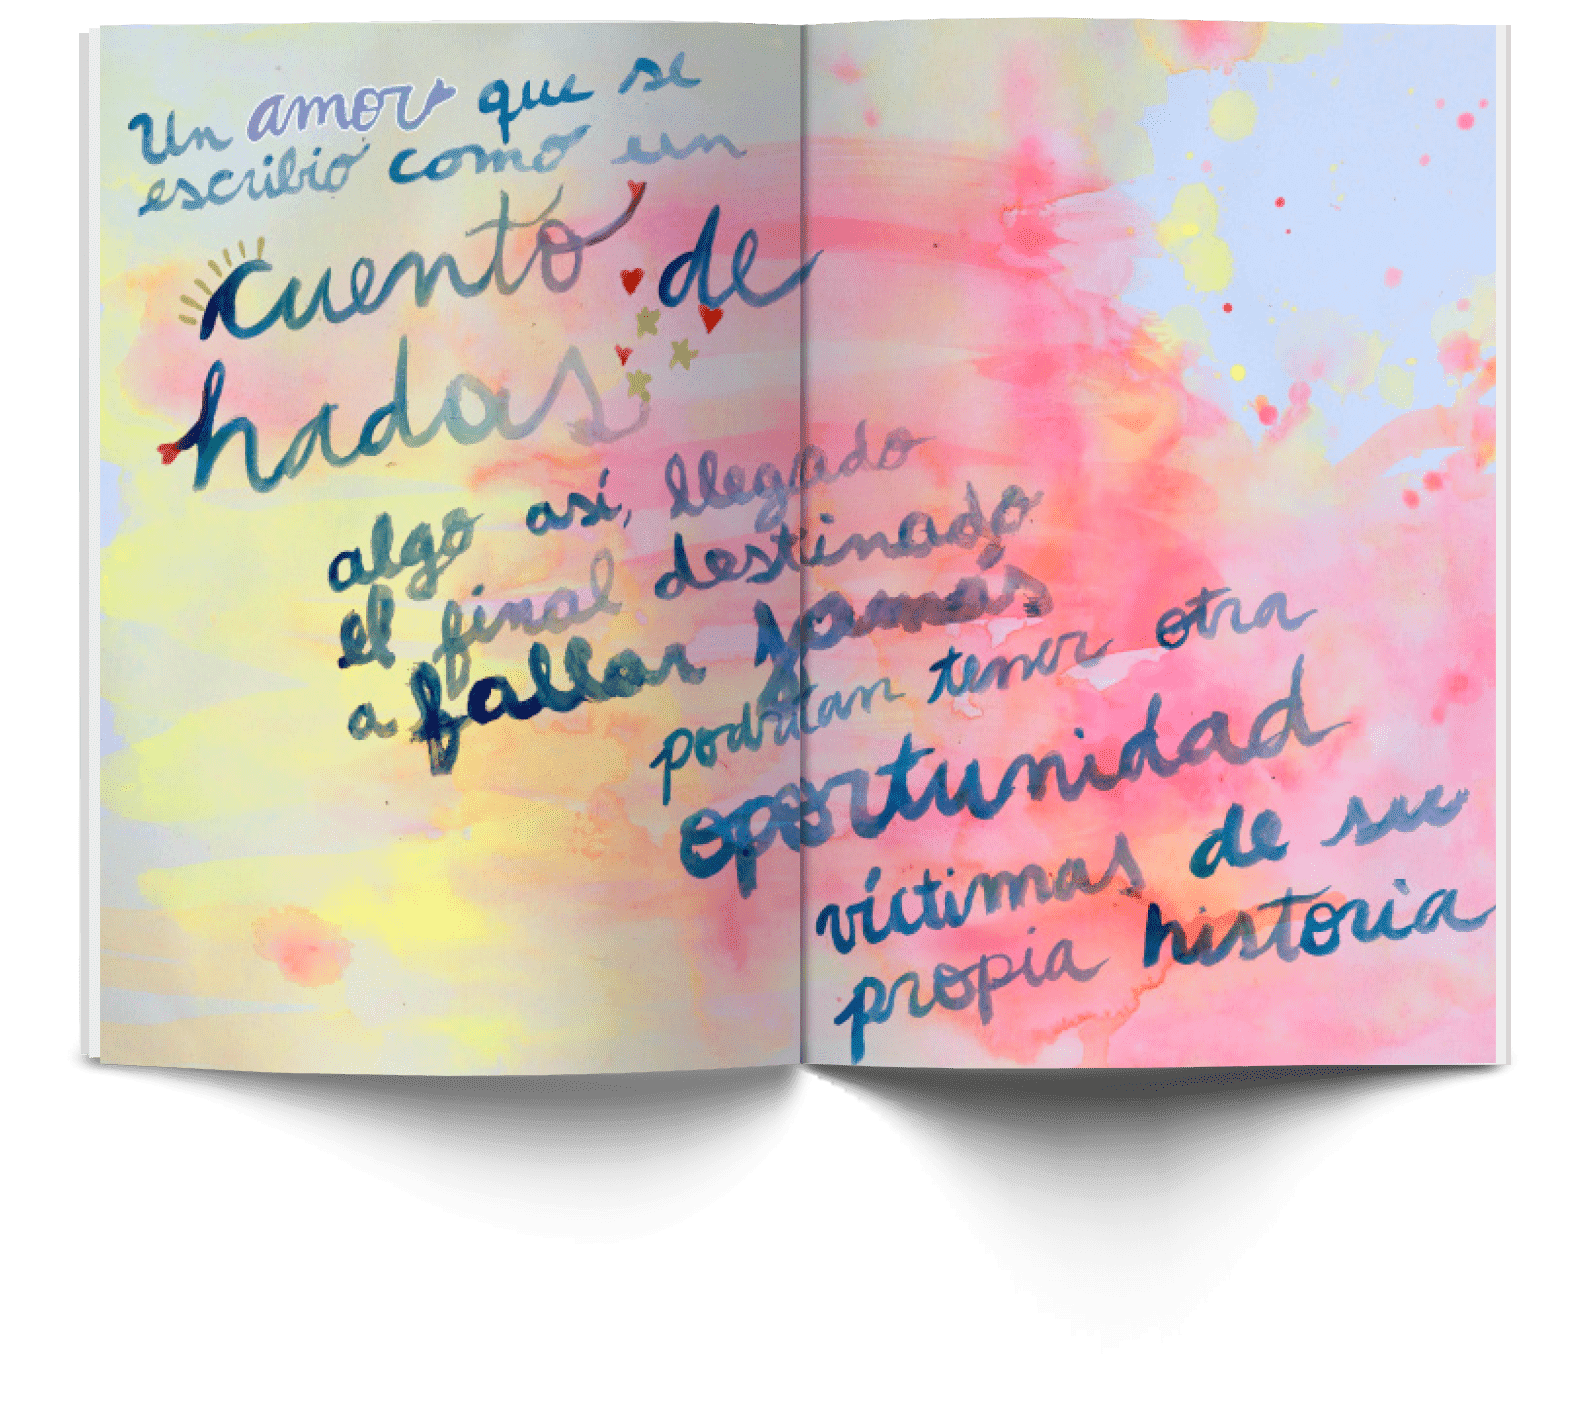 Un amor que se
escribio como un
cuento de
hadas
algo así, llegado
el final destinado
a fallar jamás
podrían tener otra
oportunidad
víctimas de su
propia historia